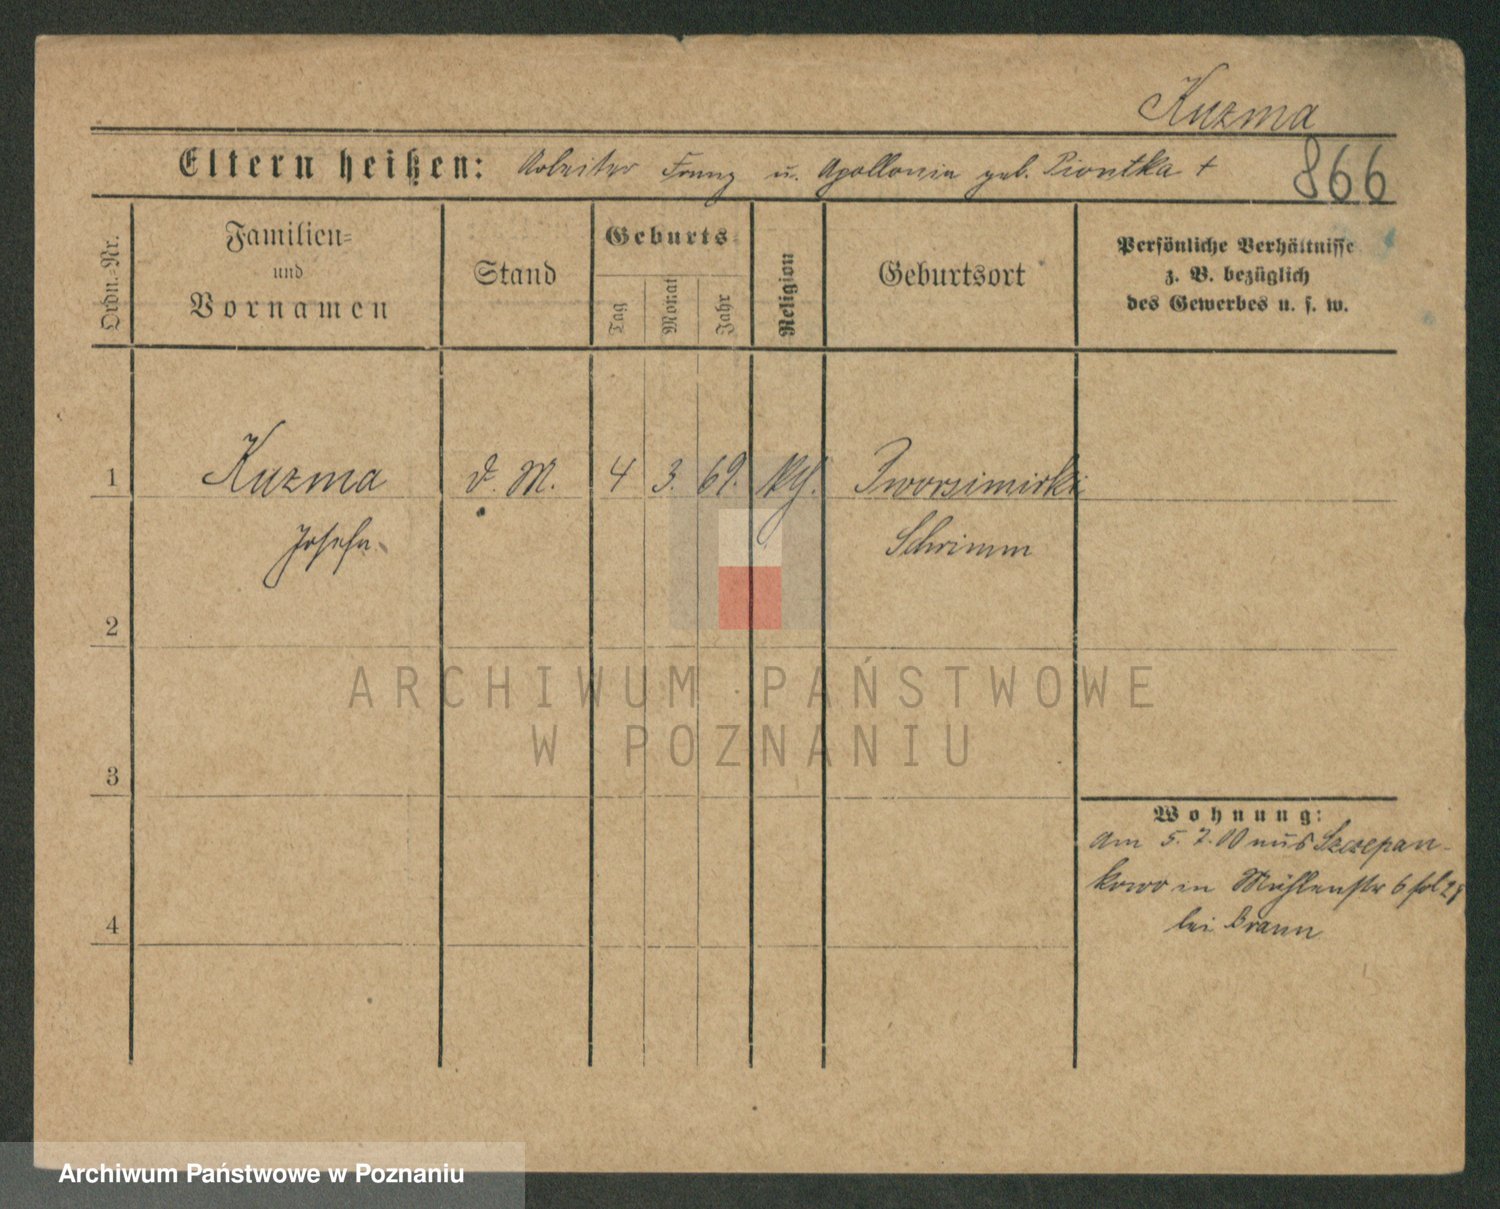 Kuzma
Eltern heißen: Arbeiter Franz u. Apollonia geb. Piontka †
866
Ordn.-Nr.
Familien-
und
Vornamen
Stand
Geburts-
Tag
Monat
Jahr
Religion
Geburtsort
Persönliche Verhältnisse
z. B. bezüglich
des Gewerbes u. s. w.
1 Kuzma d. M. 4 3. 69.
Josefa Schrimm
2
ARCHIWUM PAŃSTWOWE
W POZNANIU
3
Wohnung:
am 5. 7. 00 aus Szczepan-
kowo in Mühlenstr 6
4
bei Braun
Archiwum Państwowe w Poznaniu